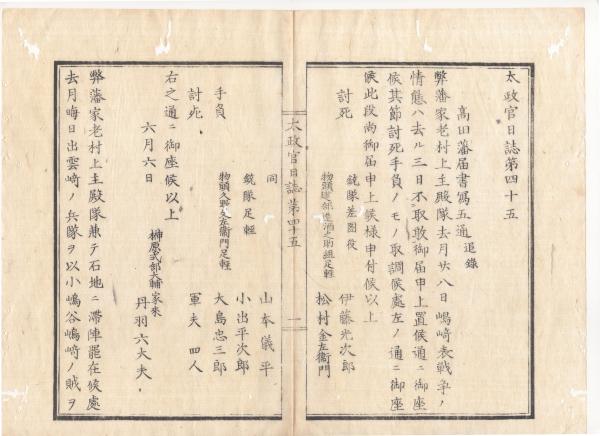 太政官日誌第四十五
高田藩届書寫五通 追錄
弊藩家老村上主殿隊去月廿八日嶋﨑表戰争ノ
情態ハ去ル三日不取敢御届申上置候通ニ御座
候其節討死手負ノモノ取調候處左ノ通ニ御座
候此段尚御届申上候様申付候以上
討死 銃隊差圖役 伊藤光次郎
物頭建部造酒之助組足輕 松村金左衛門
太政官日誌 第四十五 一
同 山本儀平
手負 銃隊足輕 小出平次郎
討死 物頭久野文左衛門足輕 大島忠三郎
軍夫 四人
右之通ニ御座候以上
六月六日
榊原式部大輔家来 丹羽六大夫
弊藩家老村上主殿隊兼テ石地ニ滞陣罷在候處
去月晦日出雲﨑ノ兵隊ヲ以小嶋谷嶋﨑ノ賊ヲ